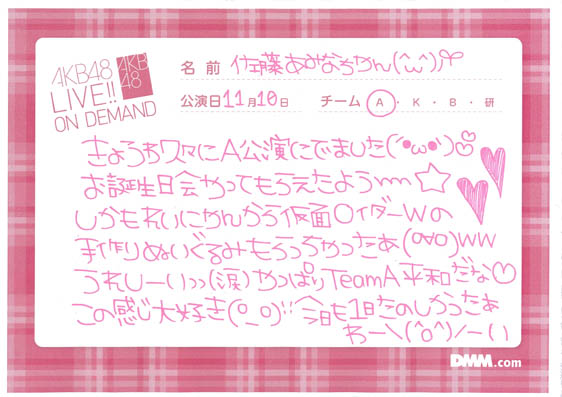 AKB48
LIVE!!
ON DEMAND
AKB
48
名前 佐藤あみなちゃん(^ω^)
公演日 11月10日 チーム A・K・B・研
きょうわ久々にA公演にでました(´●ω●`)♡♡
お誕生日会やってもらえたよう〰☆
しかもれいにゃんから仮面○イダーWの
手作りぬいぐるみもらっちゃったぁ(∀)ww
うれしーいっっ(涙)やっぱりTeamA平和だな♡
この感じ大好き(o_o)!! 今日も1日たのしかったぁ
わーい\(^o^)/ーい
DMM.com